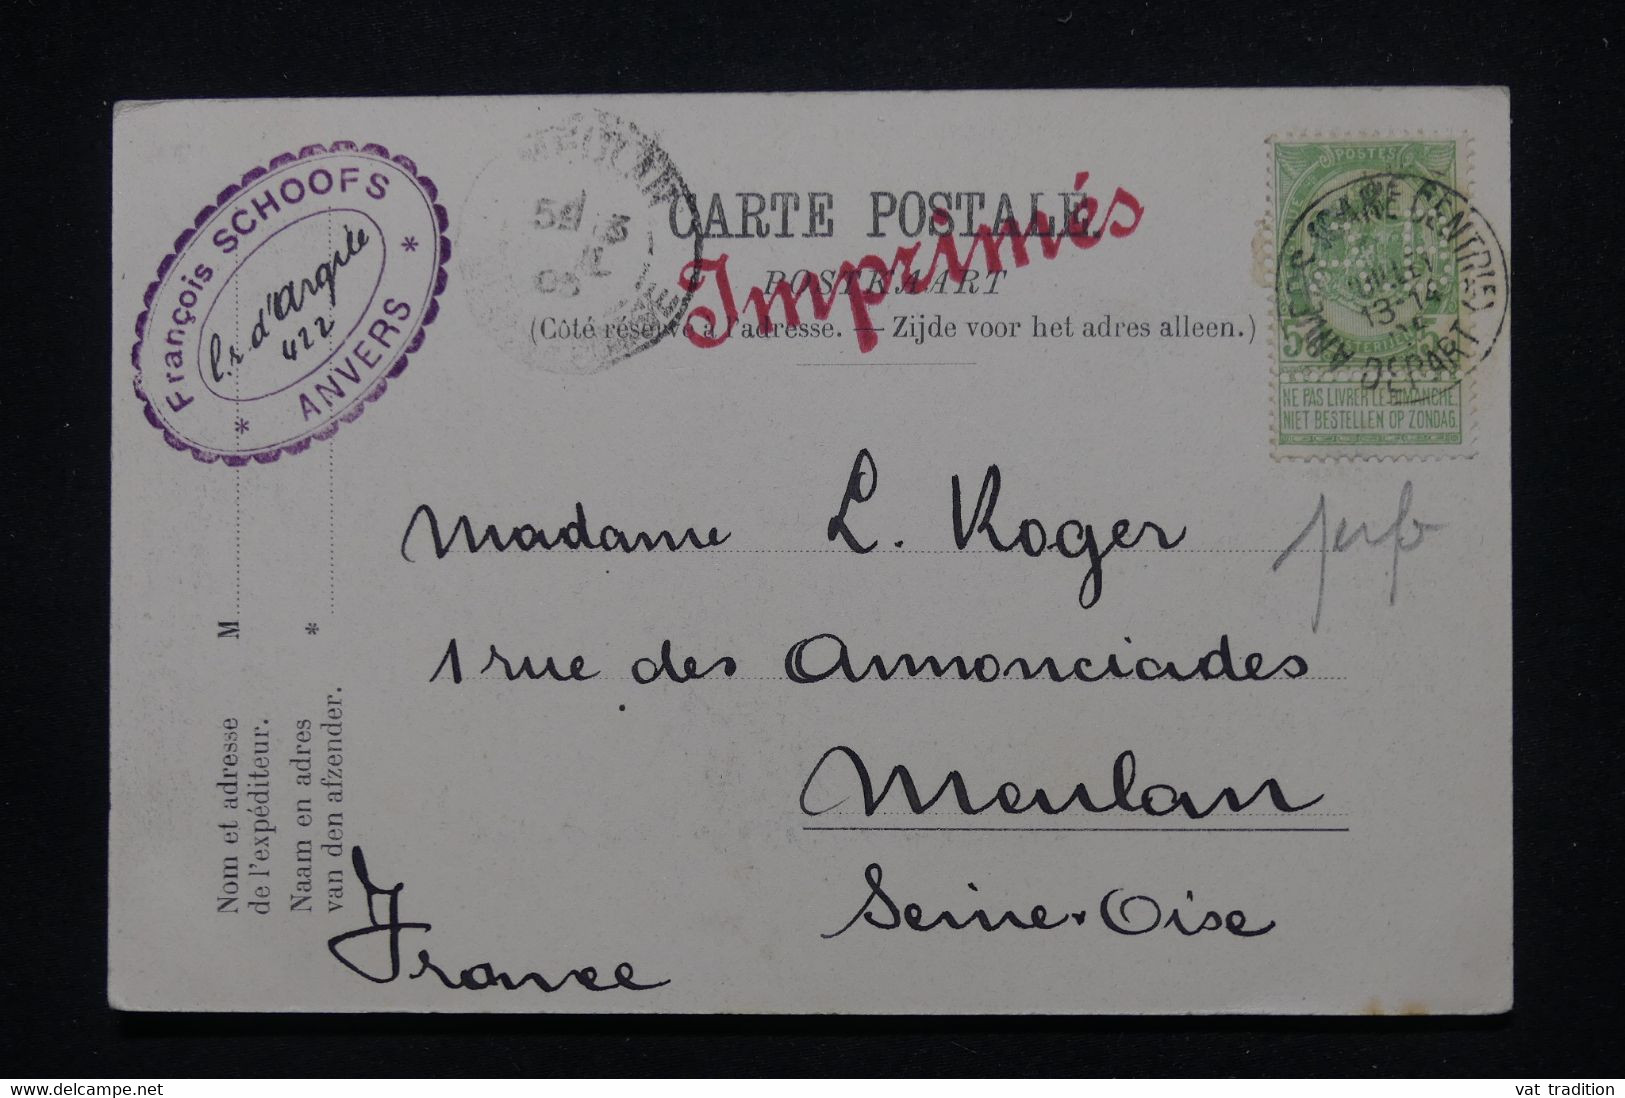 François SCHOOFS
l. r. d'Argile
422
* ANVERS *
CARTE POSTALE.
Imprimés
POSTKAART
(Côté réservé à l'adresse. — Zijde voor het adres alleen.)
POSTES
ANVERS (GARE CENTRALE)
13-14
DEPART
5
5
NE PAS LIVRER LE DIMANCHE
NIET BESTELLEN OP ZONDAG
perfo
Madame L. Roger
1 rue des Annonciades
Meulan
Seine-Oise
France
M
*
Nom et adresse
de l'expéditeur.
Naam en adres
van den afzender.
www.delcampe.net
vat_tradition